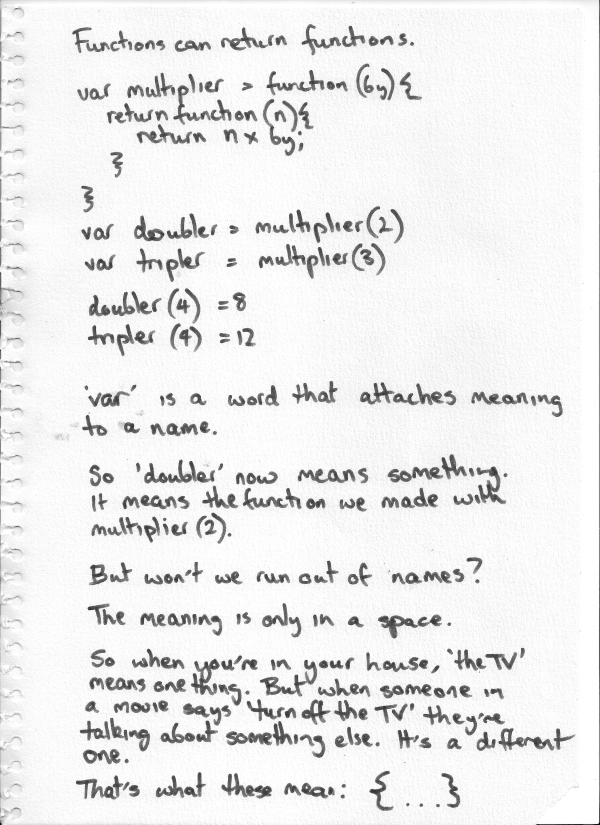 Functions can return functions.
var multiplier = function (by) {
return function (n) {
return n x by;
}
}
var doubler = multiplier (2)
var tripler = multiplier (3)
doubler (4) = 8
tripler (4) = 12
'var' is a word that attaches meaning
to a name.
So 'doubler' now means something.
It means the function we made with
multiplier (2).
But won't we run out of names?
The meaning is only in a space.
So when you're in your house, 'the TV'
means one thing. But when someone in
a movie says 'turn off the TV' they're
talking about something else. It's a different
one.
That's what these mean: { ... }